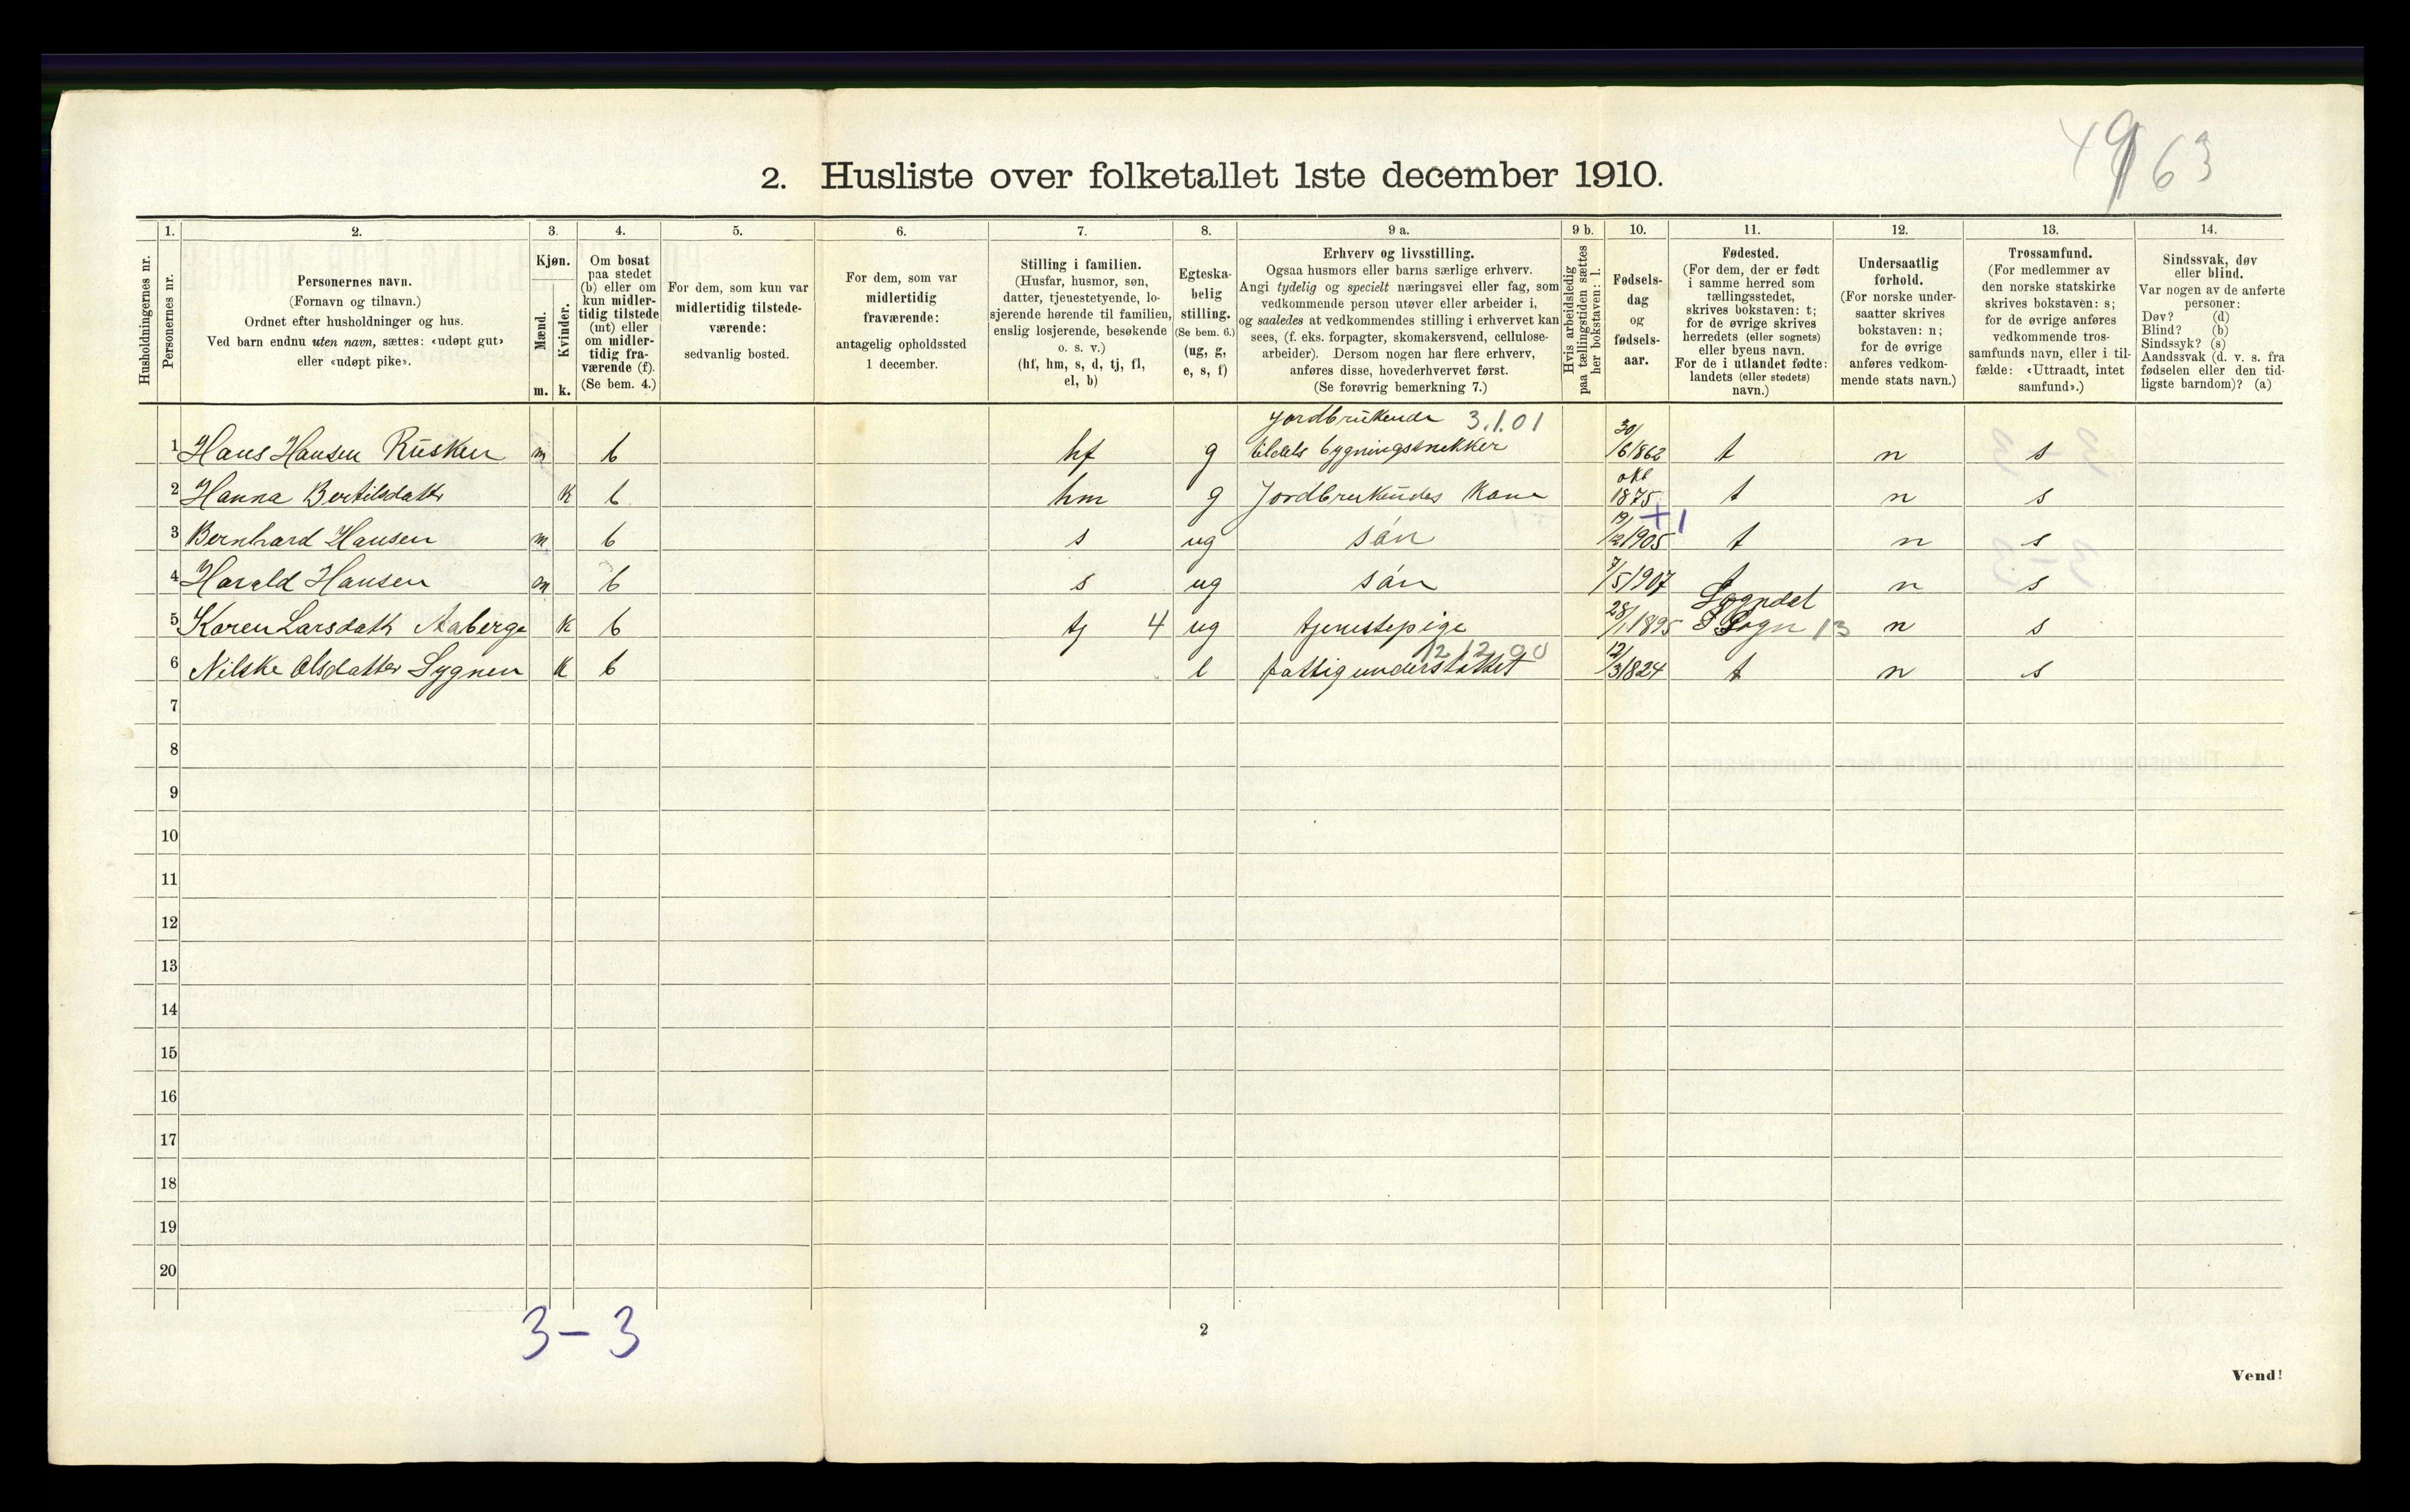 4963
2. Husliste over folketallet 1ste december 1910.
Husholdningernes nr.
1.
Personernes nr.
2.
Personernes navn.
(Fornavn og tilnavn.)
Ordnet efter husholdninger og hus.
Ved barn endnu uten navn, sættes: «udøpt gut»
eller «udøpt pike».
3.
Kjøn.
Mænd.
m.
Kvinder.
k.
4.
Om bosat
paa stedet
(b) eller om
kun midler-
tidig tilstede
(mt) eller
om midler-
tidig fra-
værende (f).
(Se bem. 4.)
5.
For dem, som kun var
midlertidig tilstede-
værende:
sedvanlig bosted.
6.
For dem, som var
midlertidig
fraværende:
antagelig opholdssted
1 december.
7.
Stilling i familien.
(Husfar, husmor, søn,
datter, tjenestetyende, lo-
sjerende hørende til familien,
enslig losjerende, besøkende
o. s. v.)
(hf, hm, s, d, tj, fl,
el, b)
8.
Egteska-
belig
stilling.
(Se bem. 6.)
(ug, g,
e, s, f)
9 a.
Erhverv og livsstilling.
Ogsaa husmors eller barns særlige erhverv.
Angi tydelig og specielt næringsvei eller fag, som
vedkommende person utøver eller arbeider i,
og saaledes at vedkommendes stilling i erhvervet kan
sees, (f. eks. forpagter, skomakersvend, cellulose-
arbeider). Dersom nogen har flere erhverv,
anføres disse, hovederhvervet først.
(Se forøvrig bemerkning 7.)
9 b.
Hvis arbeidsledig
paa tællingstiden sættes
her bokstaven: l.
10.
Fødsels-
dag
og
fødsels-
aar.
11.
Fødested.
(For dem, der er født
i samme herred som
tællingsstedet,
skrives bokstaven: t;
for de øvrige skrives
herredets (eller sognets)
eller byens navn.
For de i utlandet fødte:
landets (eller stedets)
navn.)
12.
Undersaatlig
forhold.
(For norske under-
saatter skrives
bokstaven: n;
for de øvrige
anføres vedkom-
mende stats navn.)
13.
Trossamfund.
(For medlemmer av
den norske statskirke
skrives bokstaven: s;
for de øvrige anføres
vedkommende tros-
samfunds navn, eller i til-
fælde: «Uttraadt, intet
samfund».)
14.
Sindssvak, døv
eller blind.
Var nogen av de anførte
personer:
Døv? (d)
Blind? (b)
Sindssyk? (s)
Aandssvak (d. v. s. fra
fødselen eller den tid-
ligste barndom)? (a)
Jordbrukende 3.1.01
1 Hans Hansen Rusken m b hf g tildels bygningssnekker 30/6 1862 t n s
2 Hanna Bertilsdatt k b hm g Jordbrukendes Kone okt 1875 t n s
+1
3 Bernhard Hansen m b s ug søn 19/12 1905 t n s
4 Harald Hansen m b s ug søn 7/5 1907 t n s
Sogndal
5 Karen Larsdatt Aaberge k b tj 4 ug tjenestepige 28/1 1895 i Sogn 13 n s
12 12 00
6 Nilske Olsdatter Lygnen k b l fattigunderstøttet 12/3 1824 t n s
7
8
9
10
11
12
13
14
15
16
17
18
19
20
3 – 3
2
Vend!